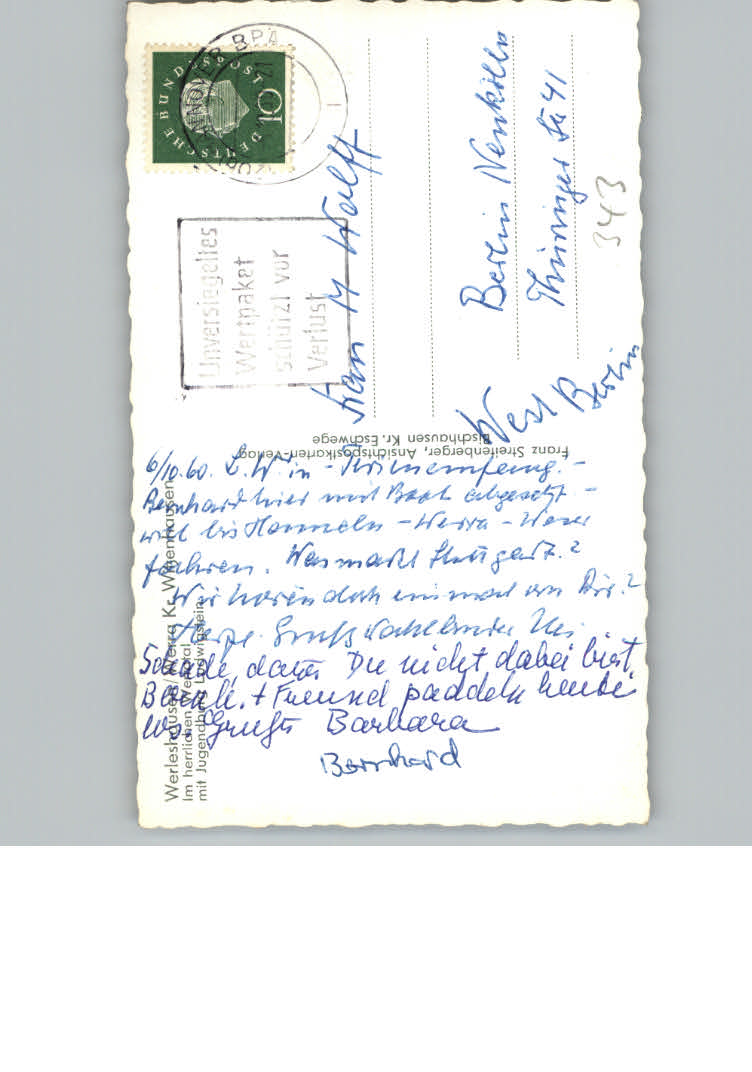 DEUTSCHE BUNDESPOST
10
HANNOVER BPA
Unversiegeltes
Wertpaket
schützt vor
Verlust
Frau M Wolff
Berlin Neukölln
Thüringer Str 41
West Berlin
343
Franz Streitenberger, Ansichtspostkarten-Verlag
Bischhausen Kr. Eschwege
Werleshausen/Werra Kr. Witzenhausen
Im herrlichen Werratal
mit Jugendburg Ludwigstein
6/10.60. L. W. in -
Bernhard hier mit Boot abgesetzt -
will bis Hammeln - Werra - Weser
fahren. Was macht Stuttgart?
Wir hören doch einmal von Dir?
Herzl. Gruß
Schade, dass Du nicht dabei bist
Bernh. + Freund paddeln heute
los. Gruß Barbara
Bernhard